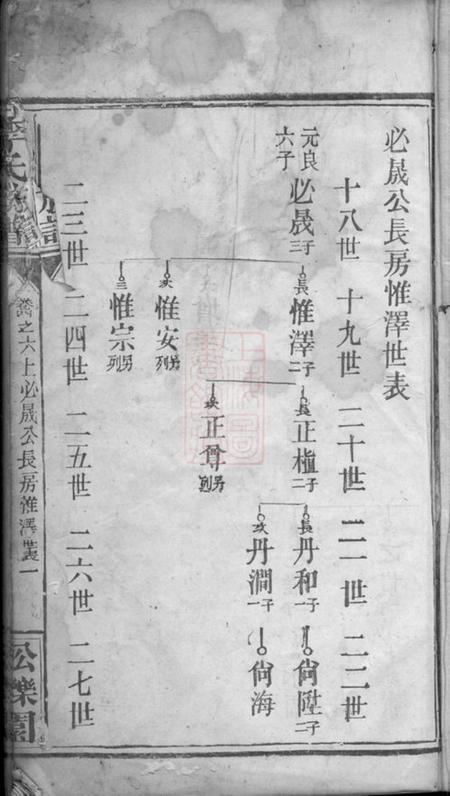 必晟公長房惟澤世表
十八世 十九世 二十世 二一世 二二世
元良六子 必晟 三子
長 惟澤 二子
長 正植 二子
長 丹和 一子
尙陞 二子
次 丹澗 一子
尙海
次 正尊 另列
次 惟安 另列
三 惟宗 另列
二三世 二四世 二五世 二六世 二七世
李氏族譜
卷之六上必晟公長房惟澤世表 一